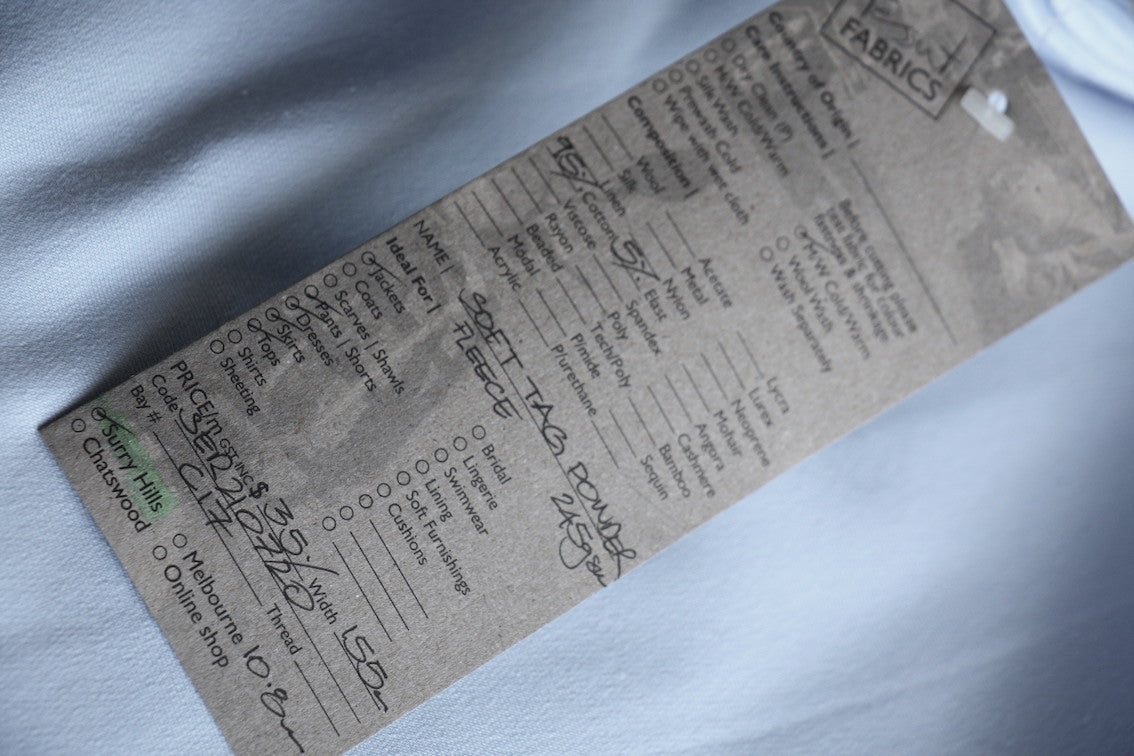 FABRICS
Country of Origin |
Care Instructions |
Dry Clean (P)
H/W Cold/Warm
Silk Wash
Prewash Cold
Wipe with wet cloth
Before cutting please
test fabric for colour
fastness & shrinkage
M/W Cold/Warm
Wool Wash
Wash Separately
Composition |
Wool
Silk
Linen
95% Cotton
Viscose
Rayon
Beaded
Modal
Acrylic
Acetate
Metal
Nylon
5% Elast
Spandex
Poly
Tech/Poly
Pimide
Plurethane
Lycra
Lurex
Neoprene
Mohair
Angora
Cashmere
Bamboo
Sequin
NAME | SOFT TAG POWDER
FLEECE 245gsm
Ideal For |
Jackets
Coats
Scarves | Shawls
Pants | Shorts
Dresses
Skirts
Tops
Shirts
Sheeting
Bridal
Lingerie
Swimwear
Lining
Soft Furnishings
Cushions
PRICE/m GST INC $ 35./ Width 155m
Code SER210720
Bay # C17 Thread
Surry Hills
Chatswood
Melbourne 10.8m
Online shop